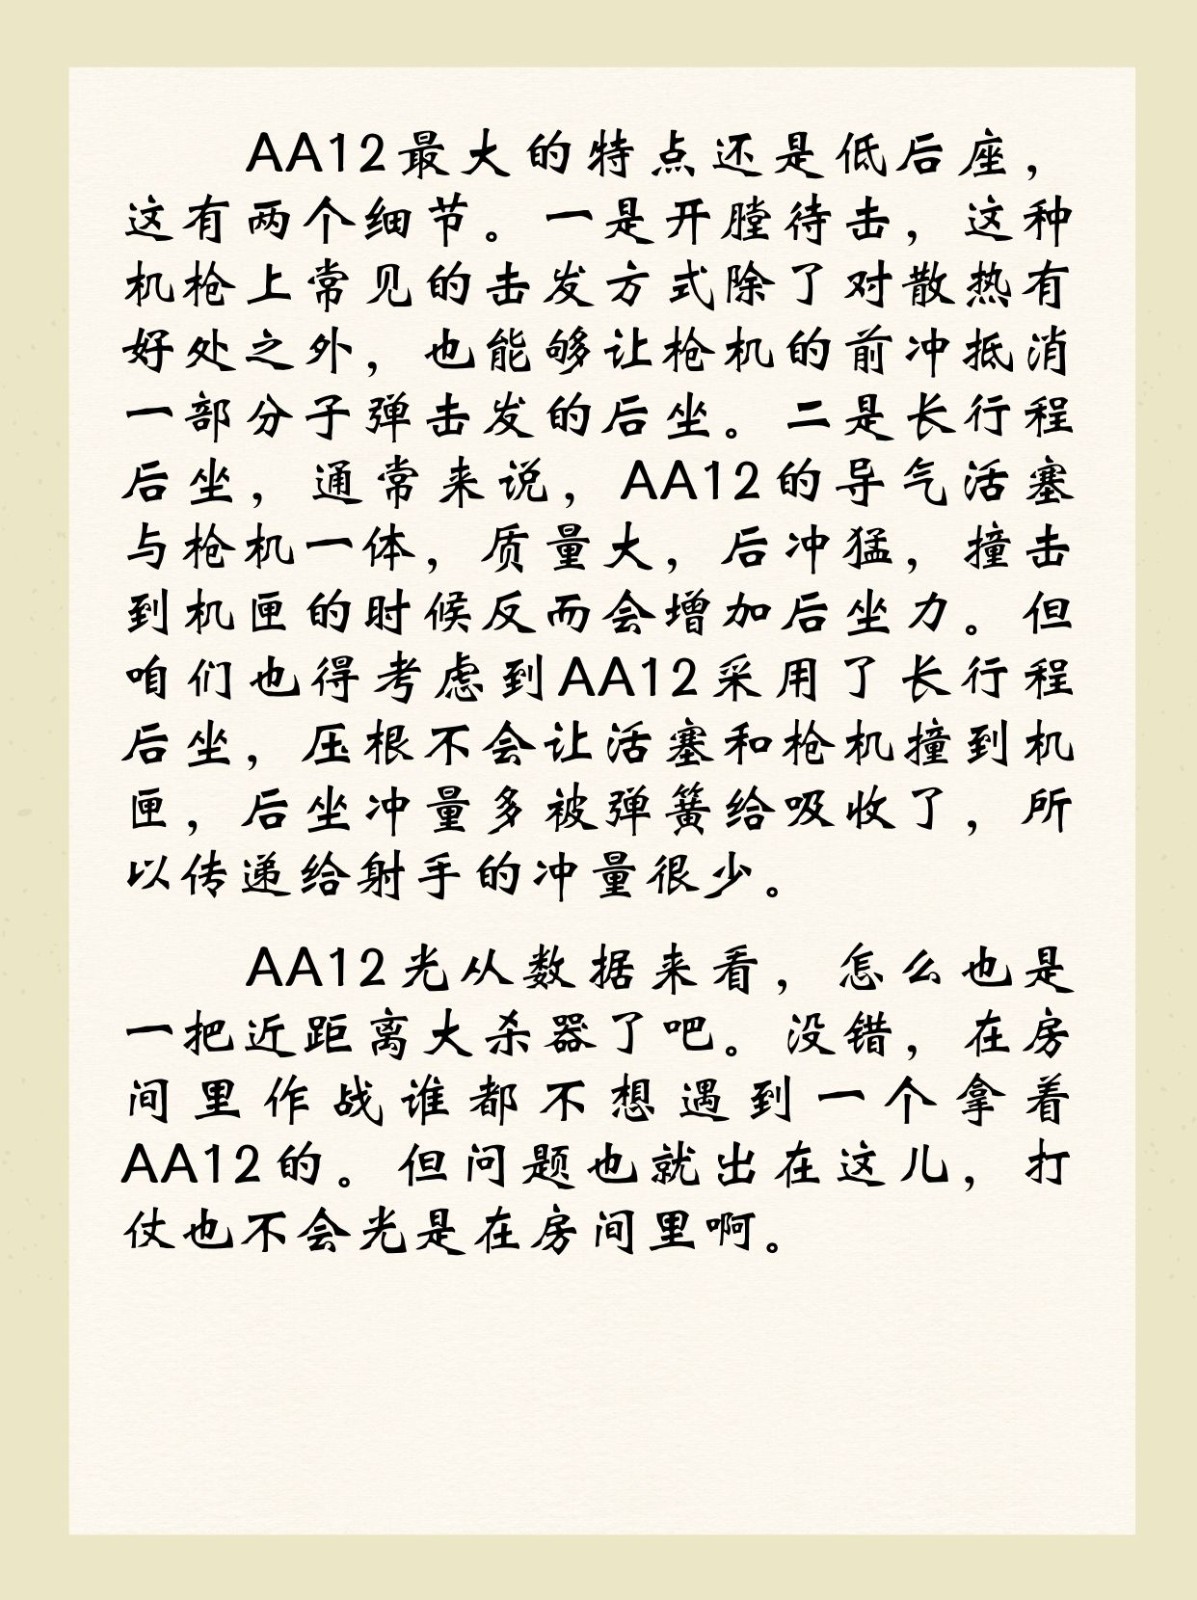 AA12最大的特点还是低后座，
这有两个细节。一是开膛待击，这种
机枪上常见的击发方式除了对散热有
好处之外，也能够让枪机的前冲抵消
一部分子弹击发的后坐。二是长行程
后坐，通常来说，AA12的导气活塞
与枪机一体，质量大，后冲猛，撞击
到机匣的时候反而会增加后坐力。但
咱们也得考虑到AA12采用了长行程
后坐，压根不会让活塞和枪机撞到机
匣，后坐冲量多被弹簧给吸收了，所
以传递给射手的冲量很少。
AA12光从数据来看，怎么也是
一把近距离大杀器了吧。没错，在房
间里作战谁都不想遇到一个拿着
AA12的。但问题也就出在这儿，打
仗也不会光是在房间里啊。